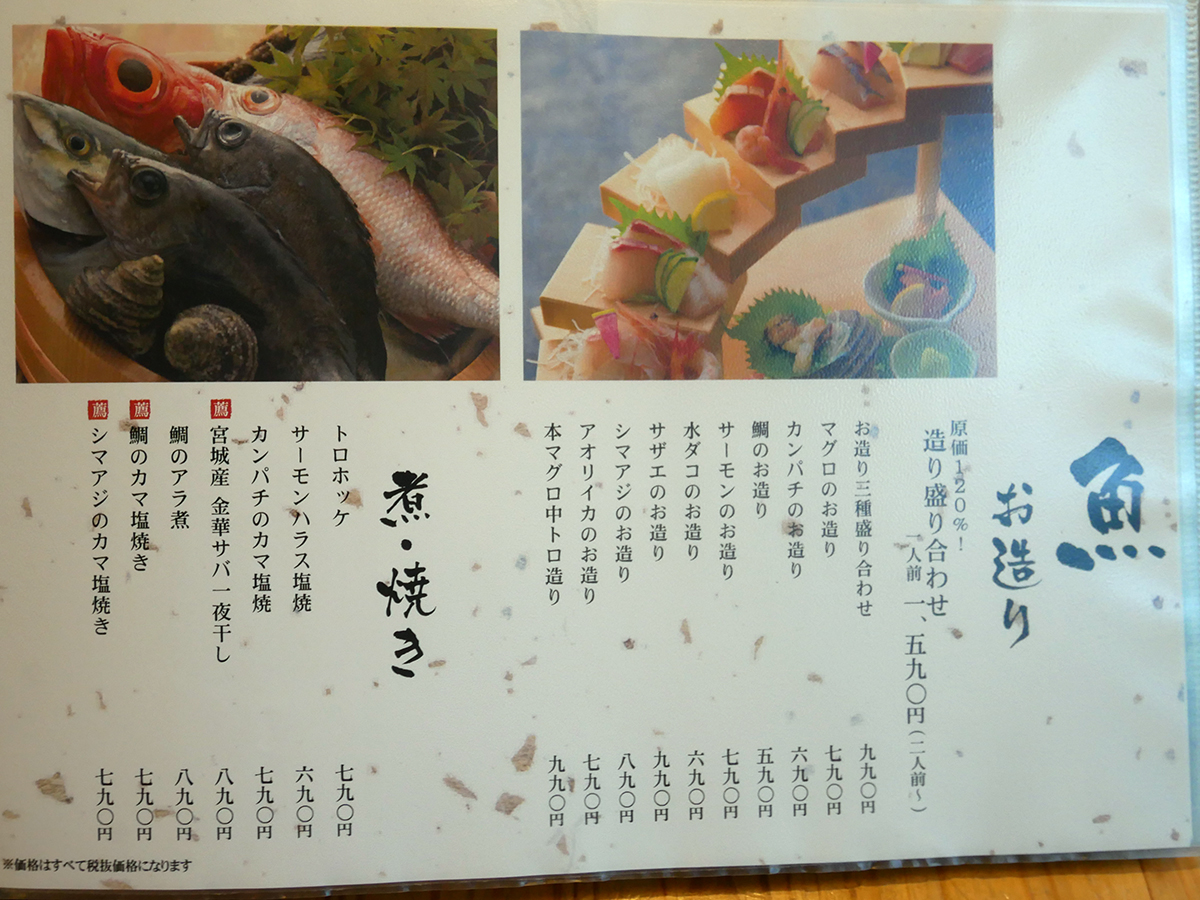 魚
お造り
原価120%!
造り盛り合わせ
一人前 一、五九〇円(二人前~)
お造り三種盛り合わせ 九九〇円
マグロのお造り 七九〇円
カンパチのお造り 六九〇円
鯛のお造り 五九〇円
サーモンのお造り 七九〇円
水ダコのお造り 六九〇円
サザエのお造り 九九〇円
シマアジのお造り 八九〇円
アオリイカのお造り 七九〇円
本マグロ中トロ造り 九九〇円
煮・焼き
トロホッケ 七九〇円
サーモンハラス塩焼 六九〇円
カンパチのカマ塩焼 七九〇円
薦 宮城産 金華サバ 一夜干し 八九〇円
鯛のアラ煮 八九〇円
薦 鯛のカマ塩焼き 七九〇円
薦 シマアジのカマ塩焼き 七九〇円
※価格はすべて税抜価格になります